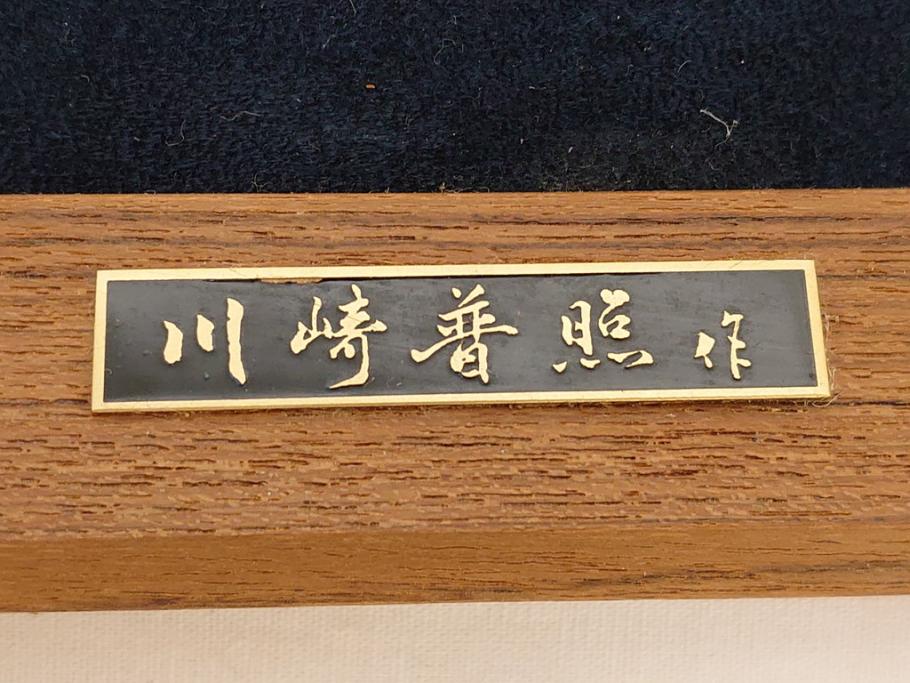 川崎普照作